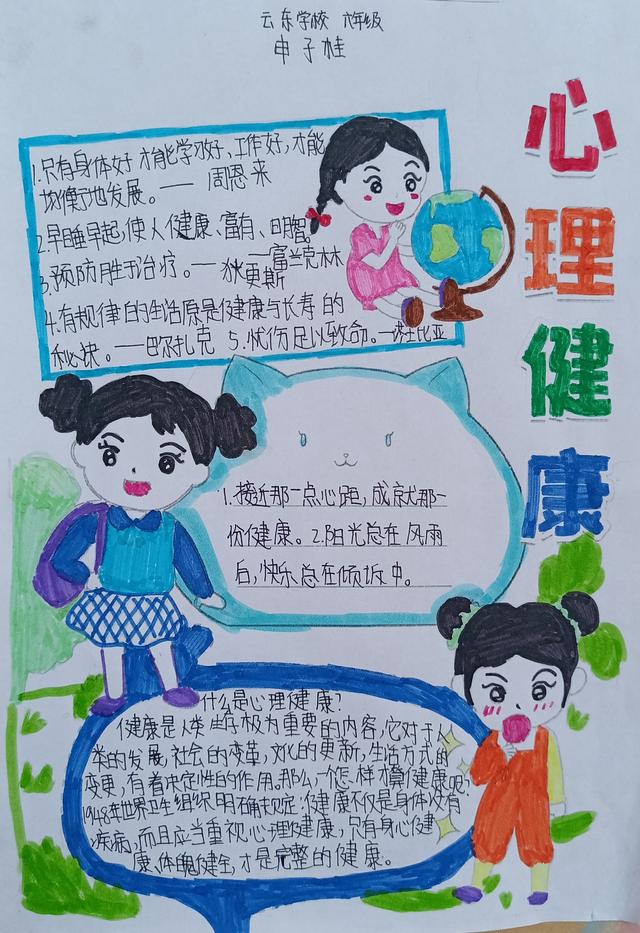 云东学校 六年级
申子桂
心理健康
1.只有身体好才能学习好、工作好,才能
均衡地发展。——周恩来
2.早睡早起,使人健康、富有、明智。
——富兰克林
3.预防胜于治疗。——狄更斯
4.有规律的生活原是健康与长寿的
秘诀。——巴尔扎克 5.忧伤足以致命。—莎士比亚
1.接近那一点心距,成就那一
份健康。2.阳光总在风雨
后,快乐总在倾诉中。
什么是心理健康?
健康是人类生存极为重要的内容,它对于人
类的发展,社会的变革,文化的更新,生活方式的
变更,有着决定性的作用。那么,一个怎样算健康呢?
1948年世界卫生组织明确规定:健康不仅是身体没有
疾病,而且应当重视心理健康,只有身心健
康、体魄健全,才是完整的健康。